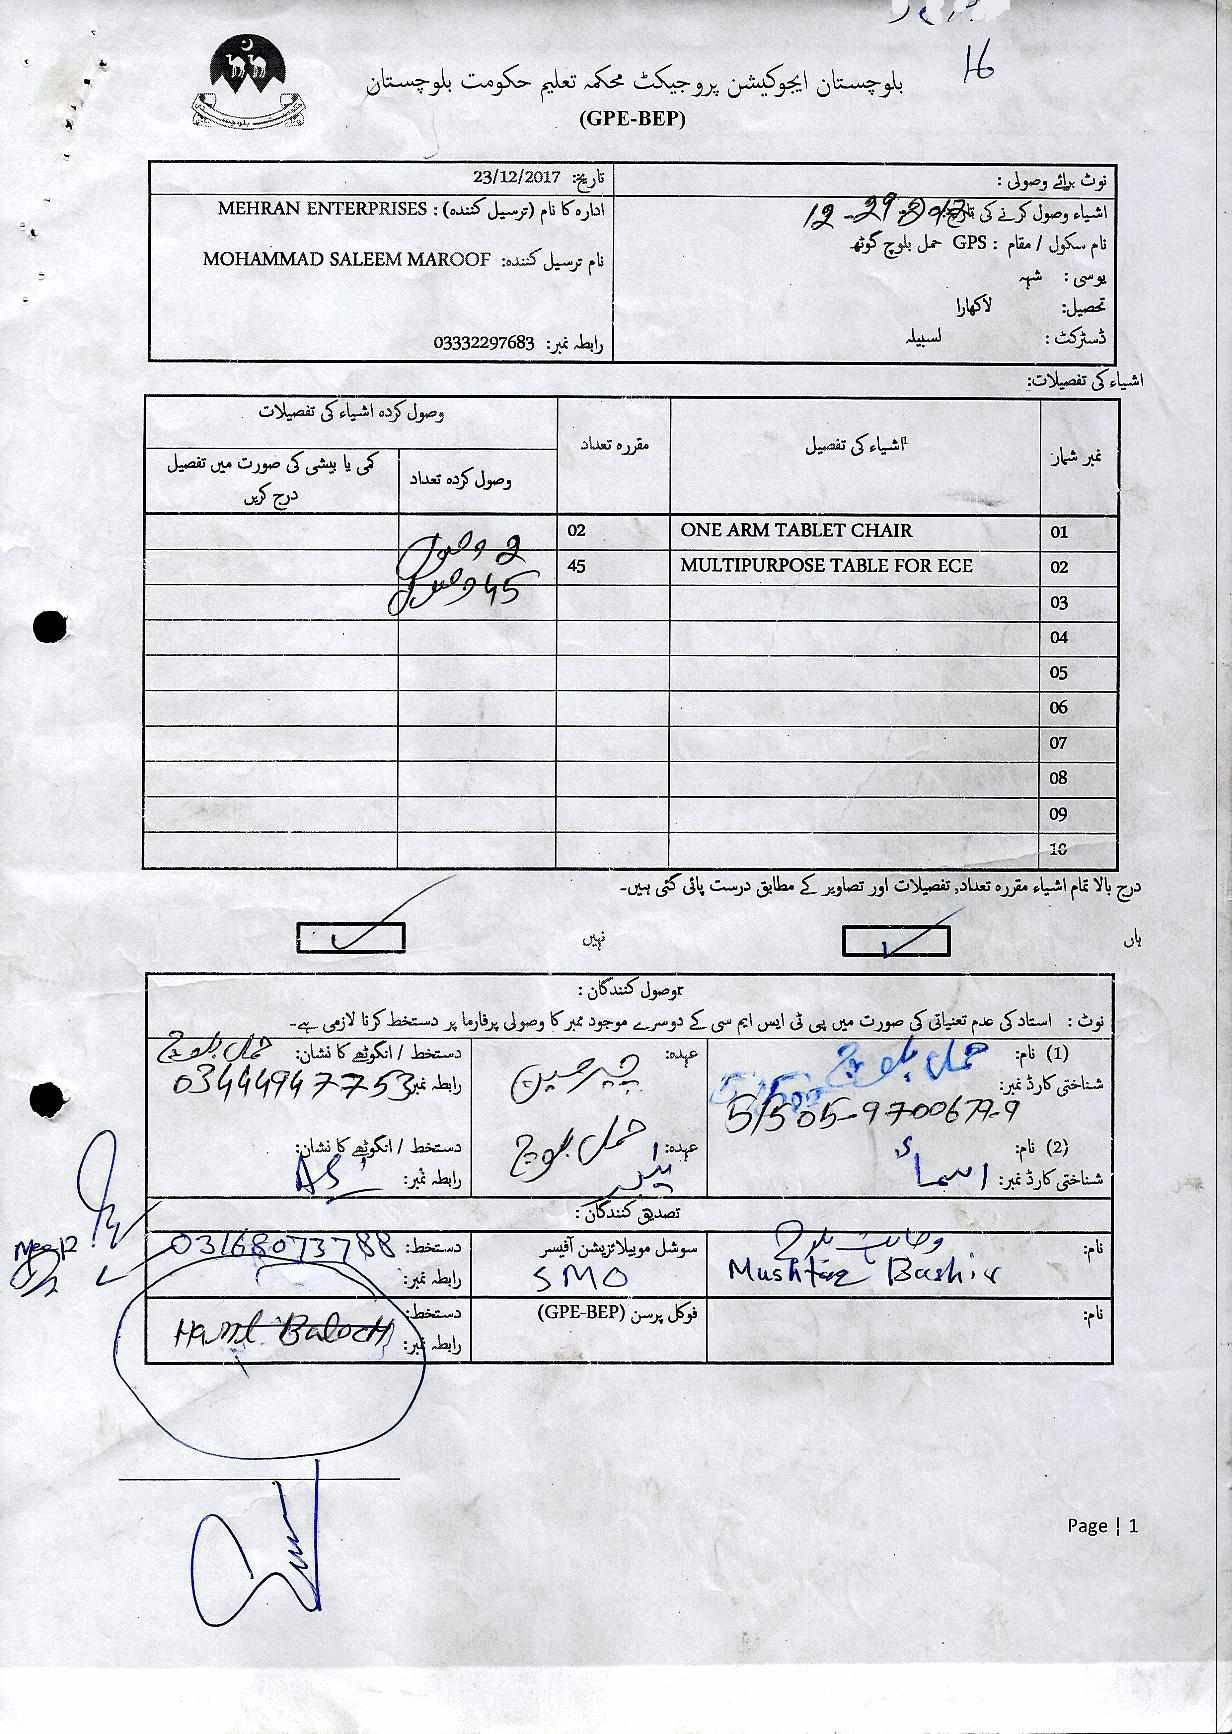 16
بلوچستان ایجوکیشن پروجیکٹ محکمہ تعلیم حکومت بلوچستان
(GPE-BEP)
نوٹ برائے وصولی :
اشیاء وصول کرنے کی تاریخ: 12-29-2017
نام سکول / مقام : GPS حمل بلوچ گوٹھ
یوسی : شہہ
تحصیل: لاکھارا
ڈسٹرکٹ : لسبیلہ
تاریخ: 23/12/2017
ادارہ کا نام (ترسیل کنندہ) : MEHRAN ENTERPRISES
نام ترسیل کنندہ: MOHAMMAD SALEEM MAROOF
رابطہ نمبر: 03332297683
اشیاء کی تفصیلات:
نمبر شمار اشیاء کی تفصیل مقررہ تعداد وصول کردہ اشیاء کی تفصیلات
وصول کردہ تعداد کمی یا بیشی کی صورت میں تفصیل درج کریں
01 ONE ARM TABLET CHAIR 02 2 وصول
02 MULTIPURPOSE TABLE FOR ECE 45 45 وصول
03
04
05
06
07
08
09
10
درج بالا تمام اشیاء مقررہ تعداد, تفصیلات اور تصاویر کے مطابق درست پائی گئی ہیں۔
ہاں ✓ نہیں ✓
وصول کنندگان :
نوٹ : استاد کی عدم تعنیاتی کی صورت میں پی ٹی ایس ایم سی کے دوسرے موجود ممبر کا وصولی پرفارما پر دستخط کرنا لازمی ہے۔
(1) نام: حمل بلوچ عہدہ: چیرمین دستخط / انگوٹھے کا نشان: حمل بلوچ
شناختی کارڈ نمبر: 51505-9700679-9 رابطہ نمبر: 03444947753
حمل بلوچ
(2) نام: اسماء عہدہ: دستخط / انگوٹھے کا نشان:
شناختی کارڈ نمبر: رابطہ نمبر:
تصدیق کنندگان :
نام: Mushtaq Bashir سوشل موبیلائزیشن آفیسر SMO دستخط: 03168073788
رابطہ نمبر:
نام: فوکل پرسن (GPE-BEP) دستخط: Haml Baloch
رابطہ نمبر:
Page | 1